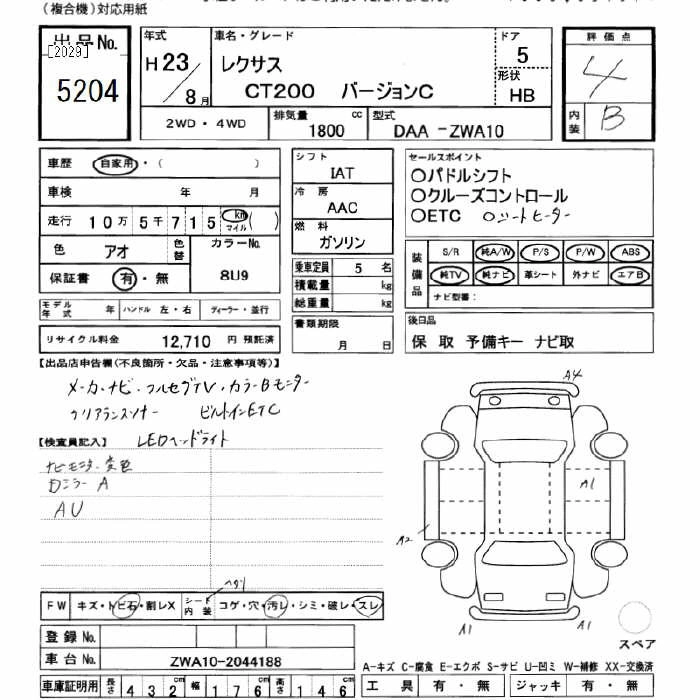 (複合機)対応用紙
出品No.
[2029]
5204
年式
H23/8月
車名・グレード
レクサス
CT200 バージョンC
ドア
5
形状
HB
2WD・4WD
排気量
1800 cc
型式
DAA-ZWA10
評価点
4
内装
B
車歴 自家用・( )
車検 年 月
走行 10万5千715 km マイル ( )
色 アオ 色替
カラーNo.
8U9
保証書 有・無
モデル年式 年 ハンドル 左・右 ディーラー・並行
リサイクル料金 12,710 円 預託済
シフト
IAT
冷房
AAC
燃料
ガソリン
乗車定員 5 名
積載量 kg
総重量 kg
書類期限
月 日
セールスポイント
○パドルシフト
○クルーズコントロール
○ETC ○シートヒーター
装備品
S/R 純A/W P/S P/W ABS
純TV 純ナビ 革シート 外ナビ エアB
ナビ型番:
後日品
保 取 予備キー ナビ取
【出品店申告欄(不良箇所・欠品・注意事項等)】
メーカーナビ・フルセグTV・カラーBモニター
クリアランスソナー ビルトインETC
LEDヘッドライト
【検査員記入】
ナビモニター変色
Dミラー A
AU
A4
A1
A2
A1
A1
スペア
FW キズ・トビ石・割レX シート内装 コゲ・穴・汚レ・シミ・破レ・スレ
登録No.
車台No. ZWA10-2044188
車庫証明用 長さ 432 cm 幅 176 cm 高さ 146 cm
A-キズ C-腐食 E-エクボ S-サビ U-凹ミ W-補修 XX-交換済
工具 有・無 ジャッキ 有・無